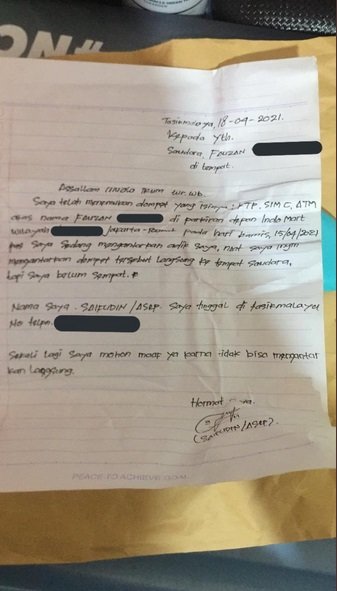 NO#
Tasikmalaya, 18-04-2021.
Kepada Yth.
Saudara FAUZAN
di tempat.
Assallam mualai kum wr.wb.
Saya telah menemukan dompet yang isinya : KTP, SIM C, ATM
atas nama FAUZAN di parkiran depan Indo Mart
Wilayah Jakarta- pada hari kamis, 15/04/2021
pas saya sedang mengantarkan adik saya, niat saya ingin
mengantarkan dompet tersebut langsung ke tempat saudara,
tapi saya belum sempat.
Nama saya . SAIFUDIN /ASEP. saya tinggal di tasikmalaya
No telpn.
Sekali lagi saya mohon maaf ya karna tidak bisa mengantar
kan langsung.
Hormat saya.
(SAIFUDIN /ASEP).
PEACE TO ACHIEVE